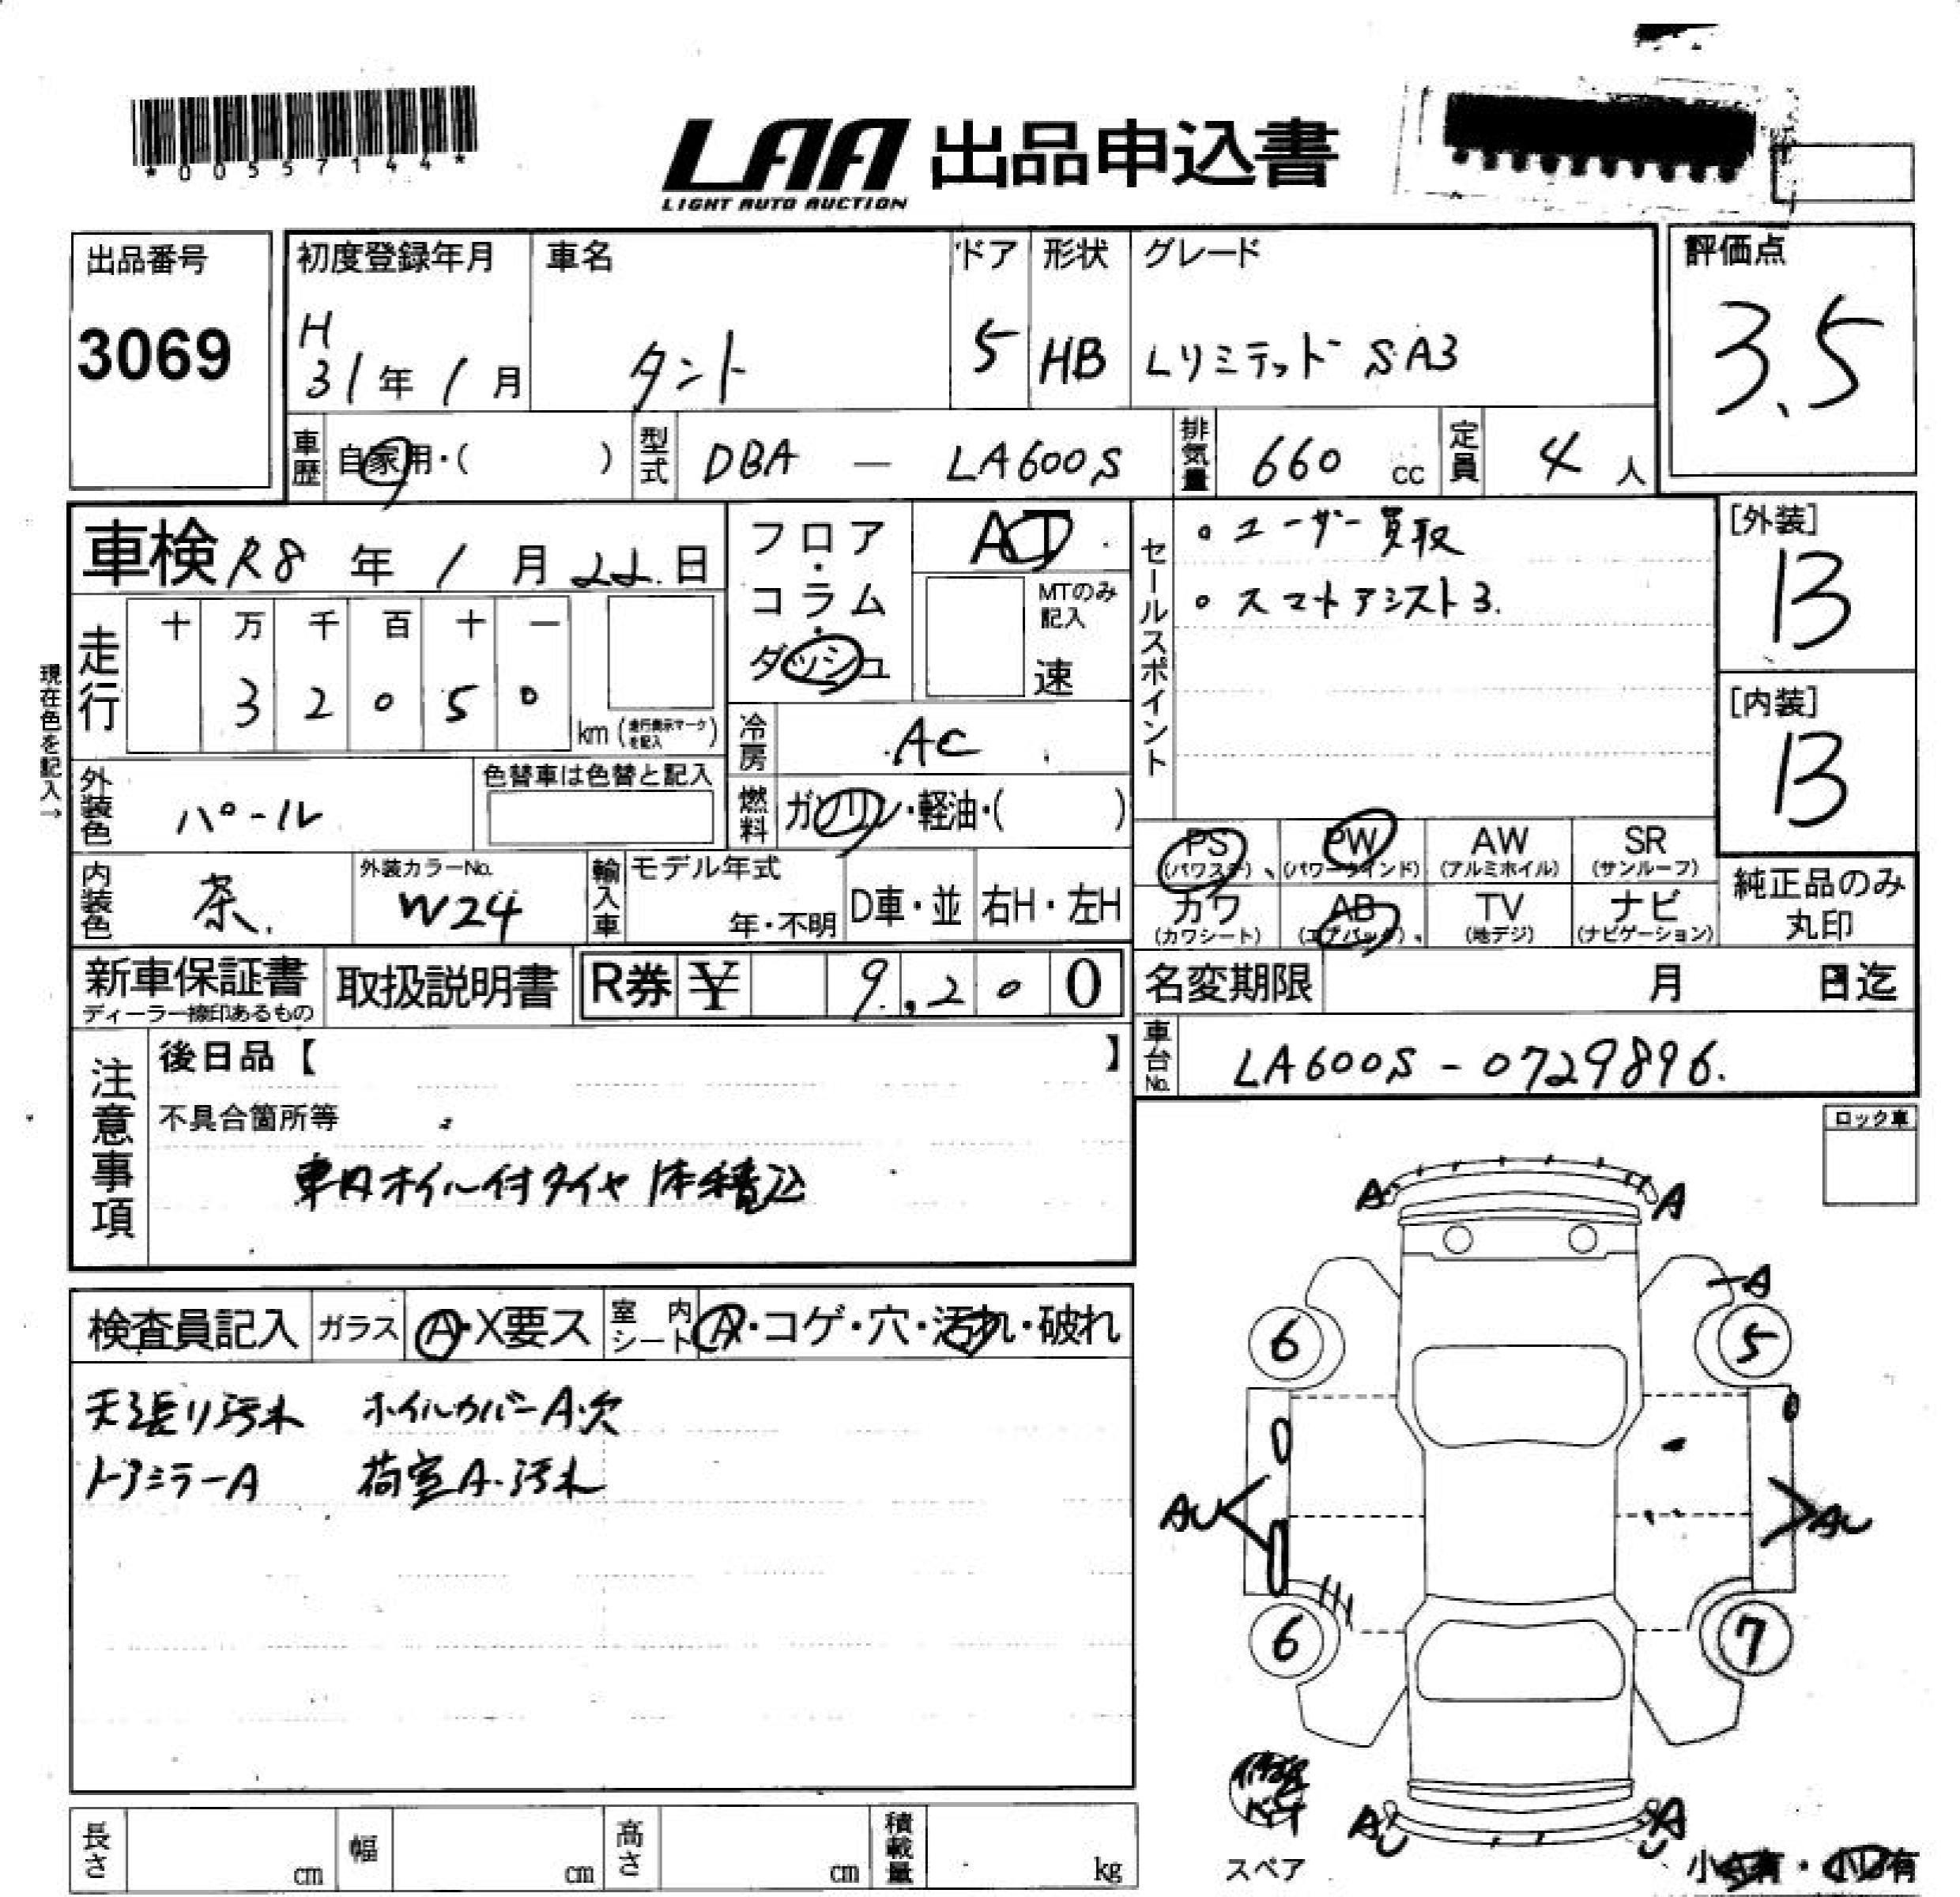 *00557144*
LAA 出品申込書
LIGHT AUTO AUCTION
出品番号
3069
初度登録年月
H
31年1月
車名
タント
ドア
5
形状
HB
グレード
Lリミテッド SA3
評価点
3.5
車歴
自家用・( )
型式
DBA — LA600S
排気量
660 cc
定員
4人
車検 R8年1月22日
現在色を記入→
走行
十 万 千 百 十 一
3 2 0 5 0
km (走行表示マークを記入)
フロア・コラム・ダッシュ
AT
MTのみ記入
速
冷房
AC
燃料
ガソリン・軽油・( )
セールスポイント
・ユーザー買取
・スマートアシスト3.
[外装]
B
[内装]
B
外装色
パール
色替車は色替と記入
内装色
茶.
外装カラーNo.
W24
輸入車
モデル年式
年・不明
D車・並
右H・左H
PS (パワステ)
PW (パワーウインド)
AW (アルミホイル)
SR (サンルーフ)
カワ (カワシート)
AB (エアバック)
TV (地デジ)
ナビ (ナビゲーション)
純正品のみ
丸印
新車保証書
ディーラー捺印あるもの
取扱説明書
R券 ¥ 9,200
名変期限 月 日迄
車台No.
LA600S-0729896.
注意事項
後日品【 】
不具合箇所等
車内ホイル付タイヤ1本積込
ロック車
検査員記入
ガラス
A・X要ス
室内シート
A・コゲ・穴・汚れ・破れ
天張り汚れ ホイルカバーA・欠
ドアミラーA 荷室A・汚れ
A A
A
6 5
AU AU
6 7
修理
キット
スペア
AU UA
小A有・小U有
長さ cm
幅 cm
高さ cm
積載量 kg